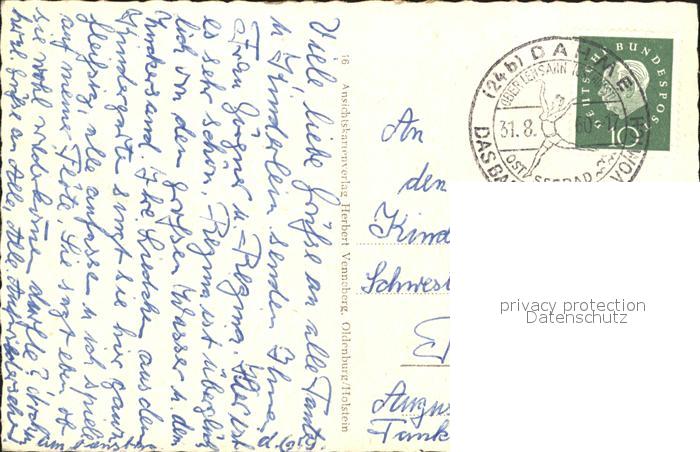 Viele, liebe Grüße an alle Tanten
u. Kinderlein senden Ihnen
Frau u. Regina. Hier ist
es sehr schön. Regina ist überglück
lich von dem großen Wasser u. dem
Zuckersand. Ihre Liedchen aus dem
Kindergarten singt sie hier ganz
fleißig, alle anfassen u. ich spiele
auf meine Flöte. Sie sagt eben ob
sie wohl wiederkommen dürfte?
16 Ansichtskartenverlag Herbert Venneberg, Oldenburg/Holstein
(24b) DAHME
ÜBER LENSAHN
31.8.
60-17
OSTSEEBAD
DAS BA
DEUTSCHE BUNDESPOST
10
An
den
Kind
Schwest
Augus
Tank
privacy protection
Datenschutz